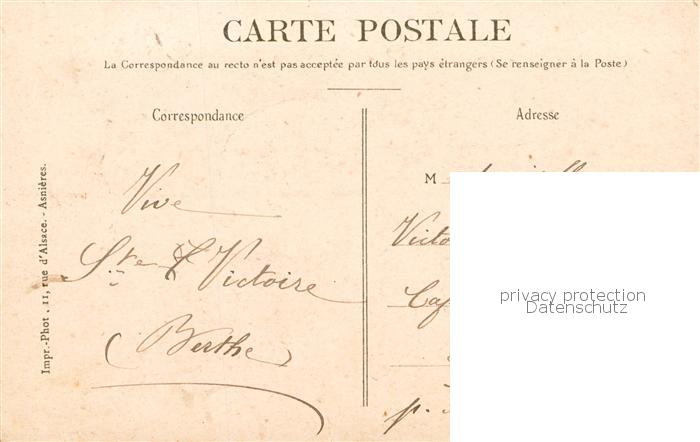 CARTE POSTALE
La Correspondance au recto n'est pas acceptée par tous les pays étrangers (Se renseigner à la Poste)
Correspondance
Adresse
Impr.-Phot. 11, rue d'Alsace. - Asnières.
Vive
Ste Victoire
(Berthe)
M
Victo
Caf
p.
privacy protection
Datenschutz